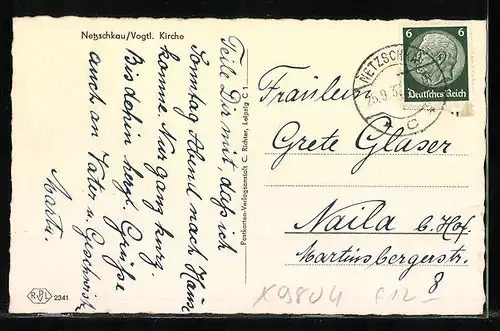 Netzschkau/Vogtl. Kirche
Teile Dir mit, daß ich
Sonntag Abend nach Hause
komme. Nur ganz kurz.
Bis dahin herzl. Grüße
auch an Vater u. Geschwister
Martin.
R D L
2341
Postkarten-Verlagsanstalt C. Richter, Leipzig C 1
6 6
Deutsches Reich
NETZSCH
C
Fräulein
Grete Glaser
Naila b. Hof.
Martinsbergerstr.
8